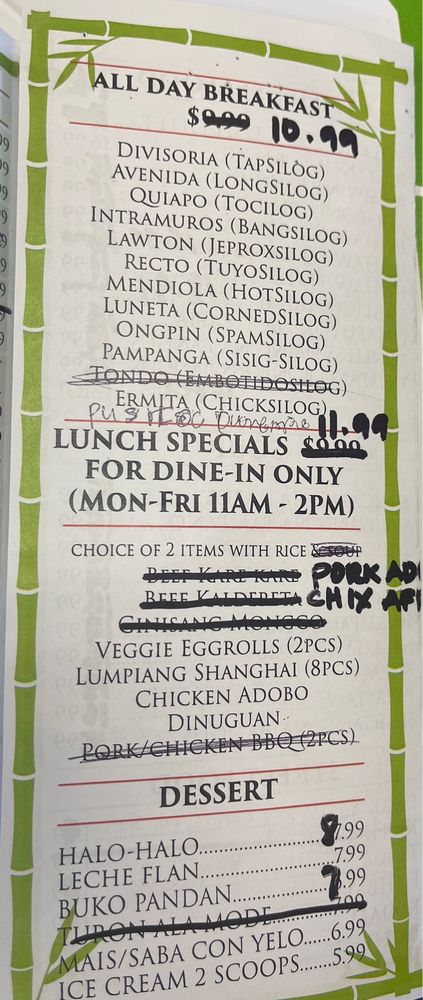 ALL DAY BREAKFAST
$9.99 10.99
DIVISORIA (TAPSILOG)
AVENIDA (LONGSILOG)
QUIAPO (TOCILOG)
INTRAMUROS (BANGSILOG)
LAWTON (JEPROXSILOG)
RECTO (TUYOSILOG)
MENDIOLA (HOTSILOG)
LUNETA (CORNEDSILOG)
ONGPIN (SPAMSILOG)
PAMPANGA (SISIG-SILOG)
TONDO (EMBOTIDOSILOG)
ERMITA (CHICKSILOG)
11.99
LUNCH SPECIALS $9.99
FOR DINE-IN ONLY
(MON-FRI 11AM - 2PM)
CHOICE OF 2 ITEMS WITH RICE & SOUP
BEEF KARE KARE PORK AD
BEEF KALDERETA CHIX AF
GINISANG MONGGO
VEGGIE EGGROLLS (2PCS)
LUMPIANG SHANGHAI (8PCS)
CHICKEN ADOBO
DINUGUAN
PORK/CHICKEN BBQ (2PCS)
DESSERT
HALO-HALO....................8.99
LECHE FLAN....................7.99
BUKO PANDAN................7.99
TURON ALA MODE............7.99
MAIS/SABA CON YELO....6.99
ICE CREAM 2 SCOOPS......5.99